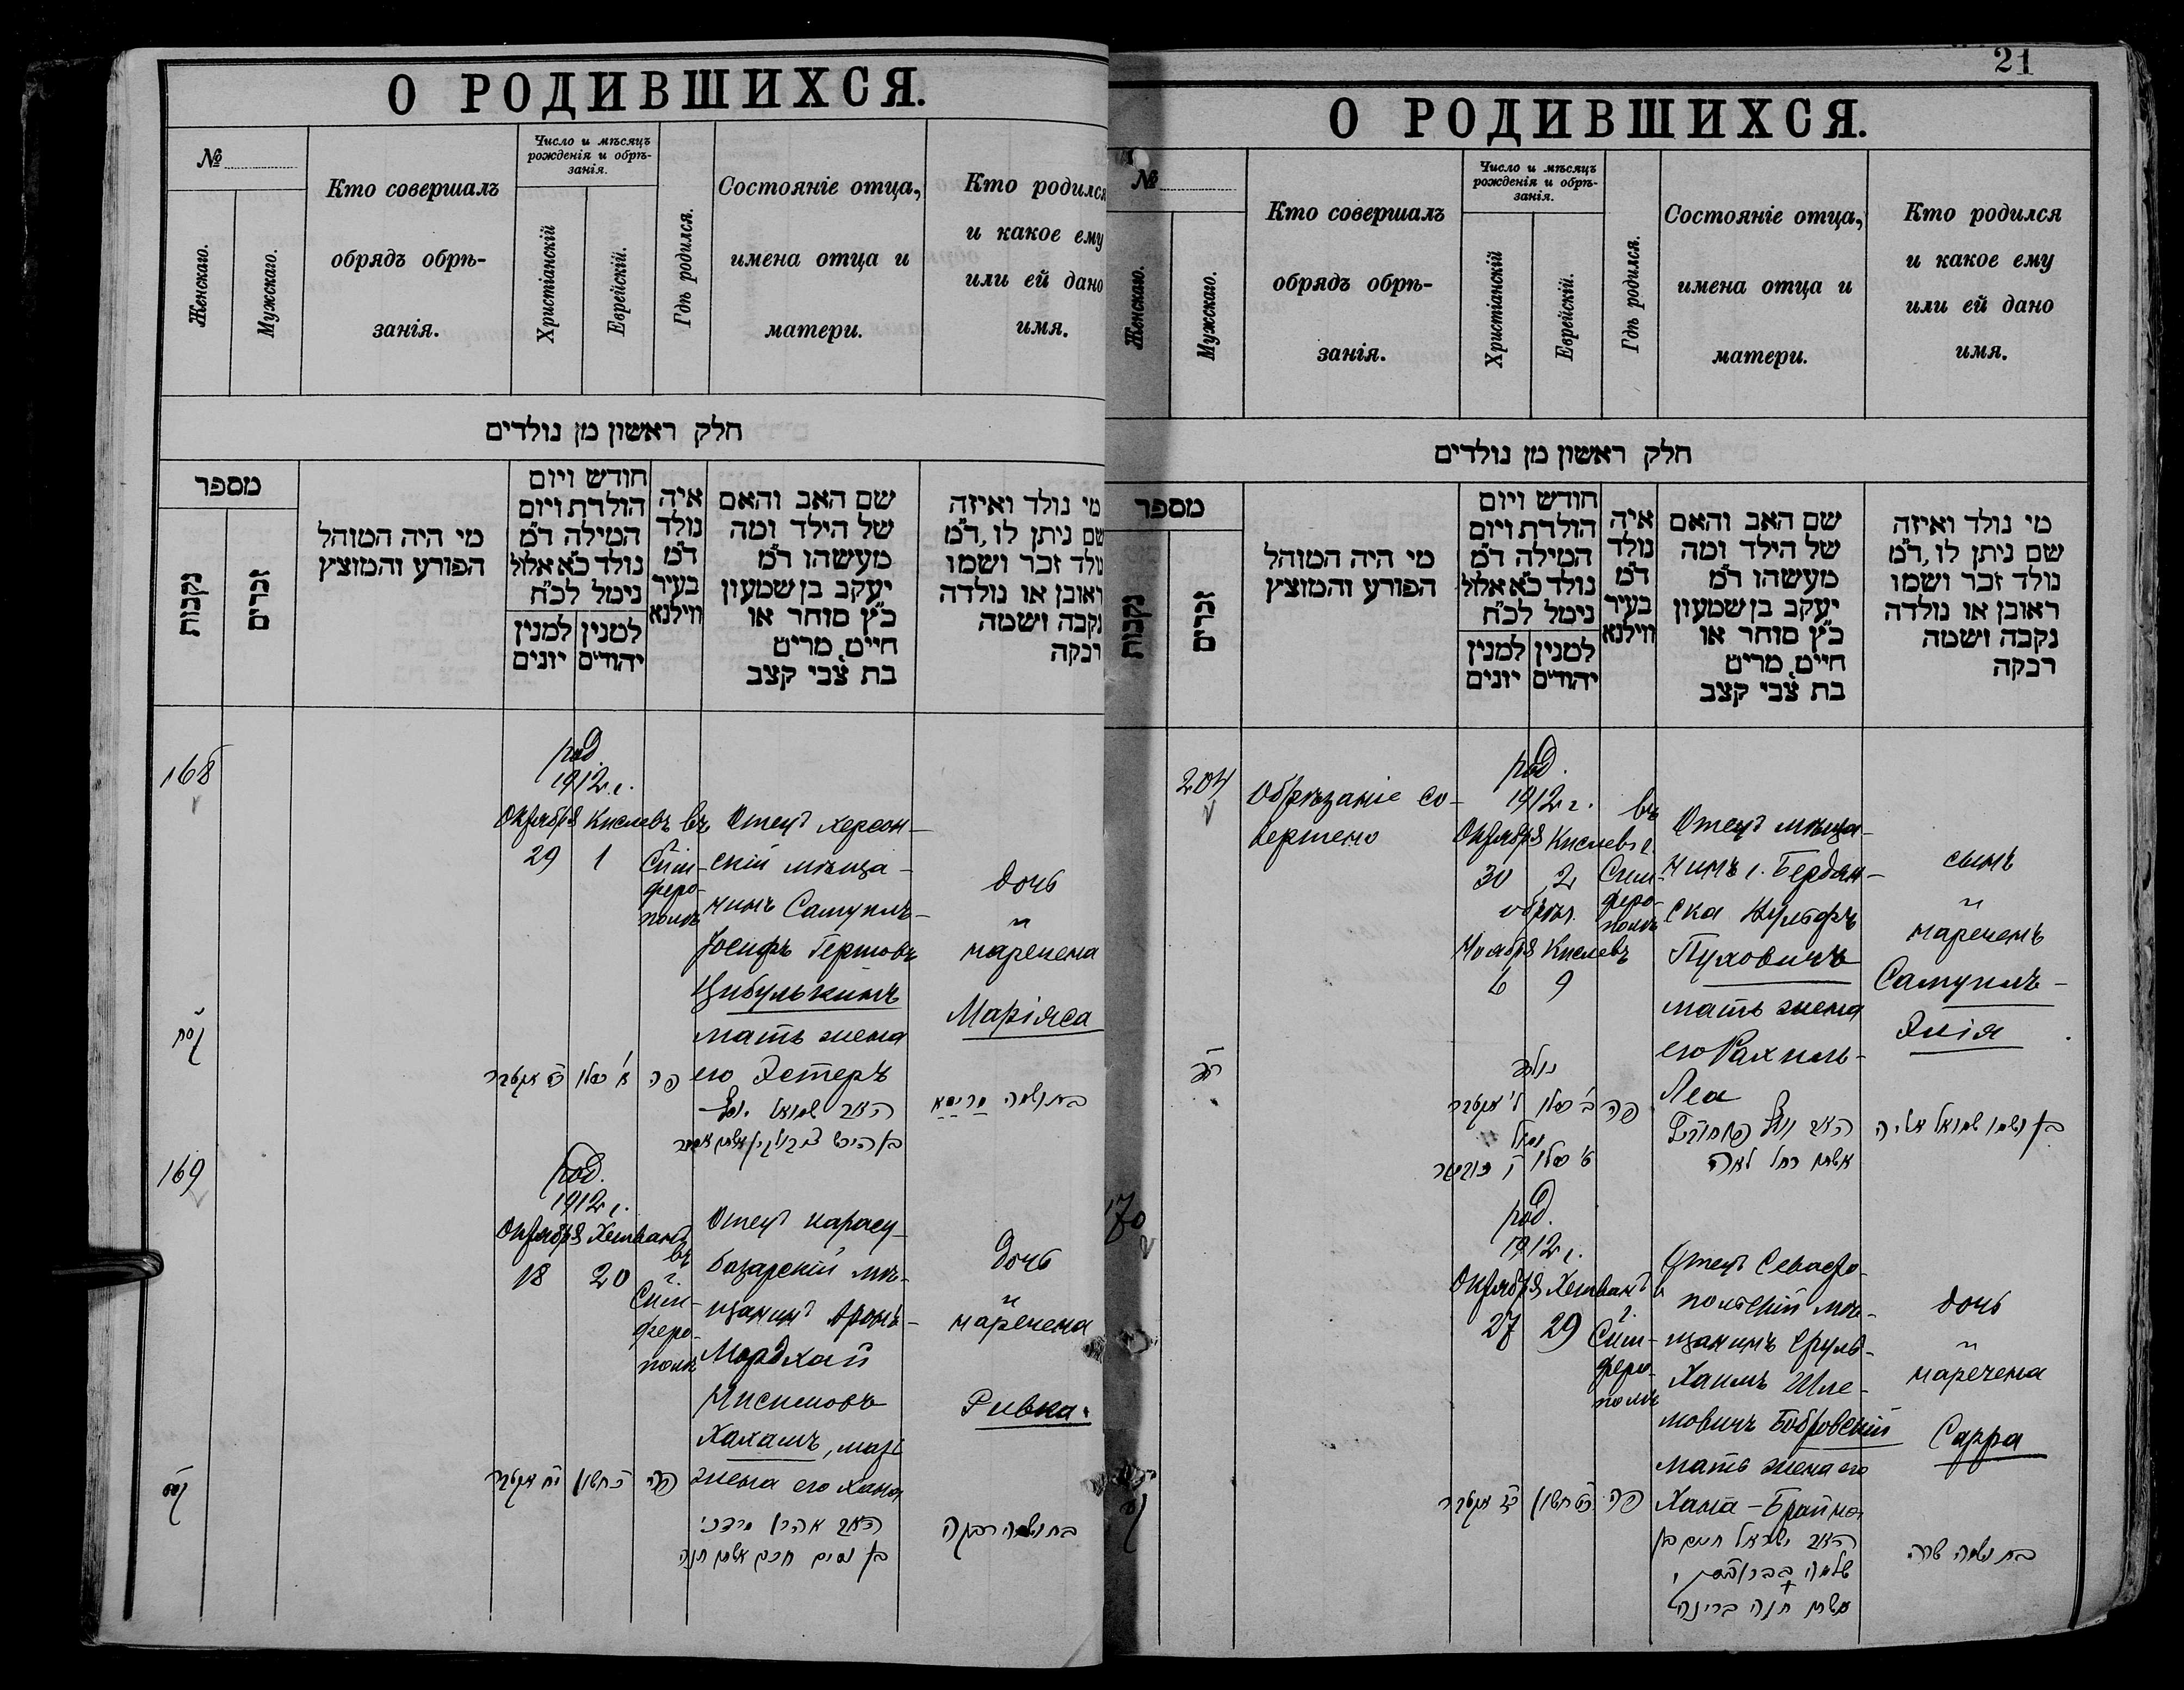 О РОДИВШИХСЯ.
№
Женскаго.
Мужскаго.
Кто совершалъ
обрядъ обрѣ-
занія.
Число и мѣсяцъ
рожденія и обрѣ-
занія.
Христіанскій
Еврейскій.
Гдѣ родился.
Состояніе отца,
имена отца и
матери.
Кто родился
и какое ему
или ей дано
имя.
חלק ראשון מן נולדים
מספר
נקבות
זכרים
מי היה המוהל
הפורע והמוצץ
חודש ויום
הולדת ויום
המילה ד"מ
נולד כ"א אלול
נימל לכ"ח
למנין למנין
יהודים יונים
איה
נולד
ד"מ
בעיר
ווילנא
שם האב והאם
של הילד ומה
מעשהו ד"מ
יעקב בן שמעון
כ"ץ סוחר או
חייט, מרים
בת צבי קצב
מי נולד ואיזה
שם ניתן לו, ד"מ
נולד זכר ושמו
ראובן או נולדה
נקבה ושמה
רבקה
168
род.
1912 г.
Октября Кислевъ
29 1
въ
г.
Сим-
феро-
полѣ
Отецъ херсон-
скій мѣща-
нинъ Самуилъ-
Іосифъ Гершовъ
Цибулькинъ
мать жена
его Эстеръ
дочь
и
наречена
Маріяса
קסח
א' כסלו
פה
האב שמואל יוסף
בת ושמה מריסא
169
род.
1912 г.
Октября Хешванъ
18 20
въ
г.
Сим-
феро-
полѣ
Отецъ карасу-
базарскій мѣ-
щанинъ Аронъ-
Мордхай
Нисимовъ
Хахамъ, мать
жена его Хана
дочь
и
наречена
Ривка.
קסט
כ' חשון
פה
האב אהרן מרדכי
בן נסים חכם אשתו חנה
בת ושמה רבקה
21
О РОДИВШИХСЯ.
№
Женскаго.
Мужскаго.
Кто совершалъ
обрядъ обрѣ-
занія.
Число и мѣсяцъ
рожденія и обрѣ-
занія.
Христіанскій
Еврейскій.
Гдѣ родился.
Состояніе отца,
имена отца и
матери.
Кто родился
и какое ему
или ей дано
имя.
חלק ראשון מן נולדים
מספר
נקבות
זכרים
מי היה המוהל
הפורע והמוצץ
חודש ויום
הולדת ויום
המילה ד"מ
נולד כ"א אלול
נימל לכ"ח
למנין למנין
יהודים יונים
איה
נולד
ד"מ
בעיר
ווילנא
שם האב והאם
של הילד ומה
מעשהו ד"מ
יעקב בן שמעון
כ"ץ סוחר או
חייט, מרים
בת צבי קצב
מי נולד ואיזה
שם ניתן לו, ד"מ
נולד זכר ושמו
ראובן או נולדה
נקבה ושמה
רבקה
204
Обрѣзаніе со-
вершено
род.
1912 г.
Октября Кислевъ
30 2
обрѣз.
Ноября Кислевъ
6 9
въ
г.
Сим-
феро-
полѣ
Отецъ мѣща-
нинъ г. Бердян-
ска Вульфъ
Пуховичъ
мать жена
его Рахиль-
Леа
сынъ
и
нареченъ
Самуилъ-
Элія
נולד
ב' כסלו
פה
נימול
ט' כסלו
אשתו רחל לאה
בן ושמו שמואל אליה
170
род.
1912 г.
Октября Хешванъ
27 29
въ
г.
Сим-
феро-
полѣ
Отецъ Севасто-
польскій мѣ-
щанинъ Сруль-
Хаимъ Шле-
мовичъ Бобровскій
мать жена его
Хана-Брайна
дочь
и
наречена
Сарра
כ"ט חשון
פה
האב ישראל חיים בן
אשתו חנה בריינה
בת ושמה שרה